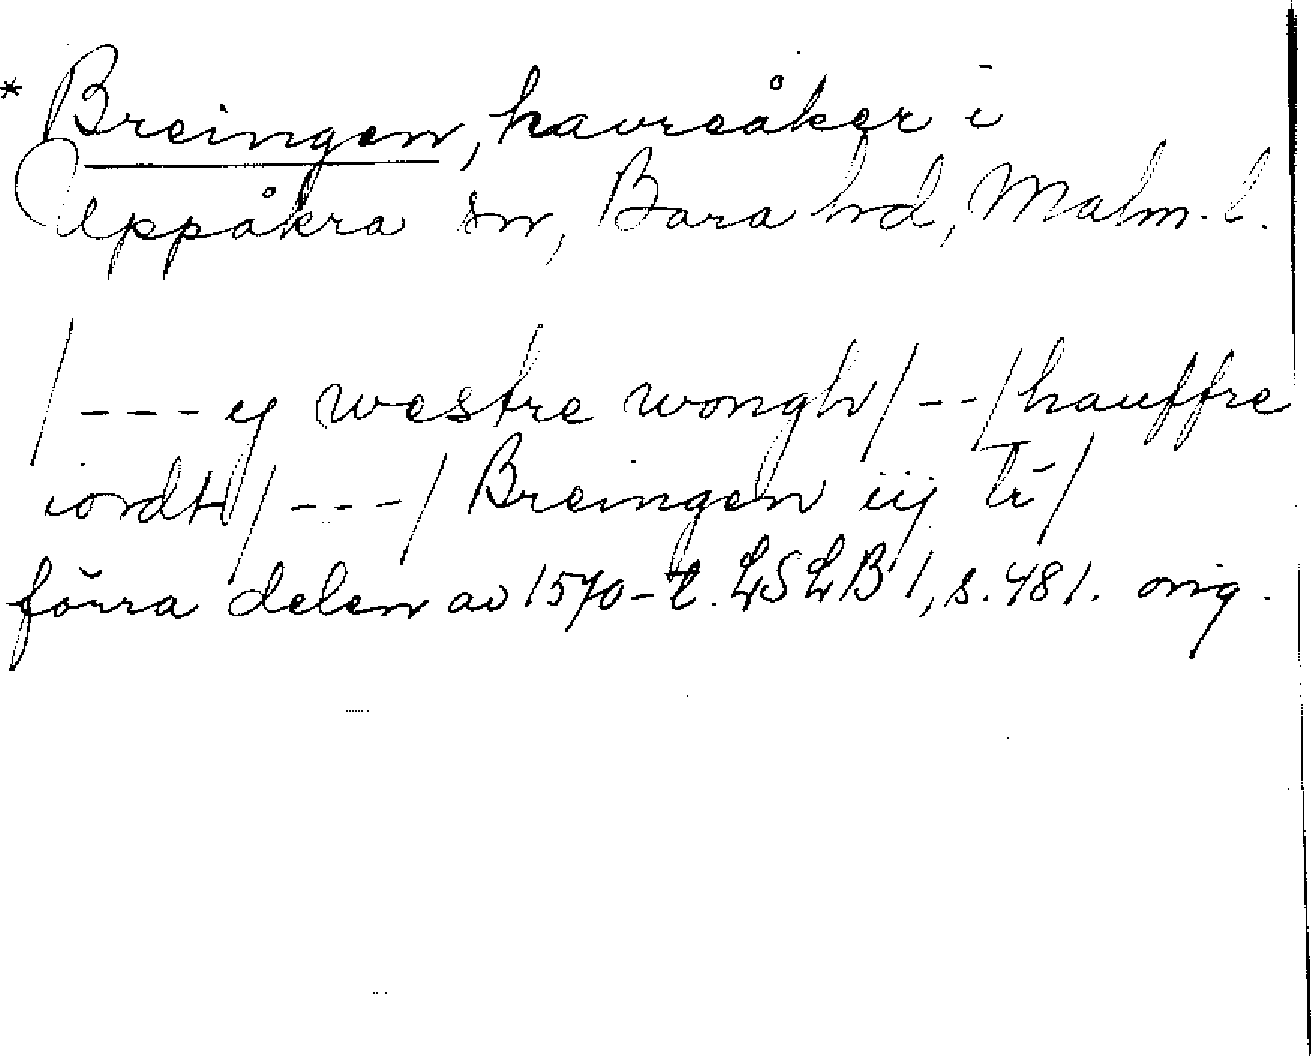 * Breingen, havreåker i
Uppåkra sn, Bara hd, Malm. l.
/--- ij westre wongh/--/hauffre
iordt/---/ Breingen iij tr/
förra delen av 1570-t. LSLB 1, s. 481. orig.